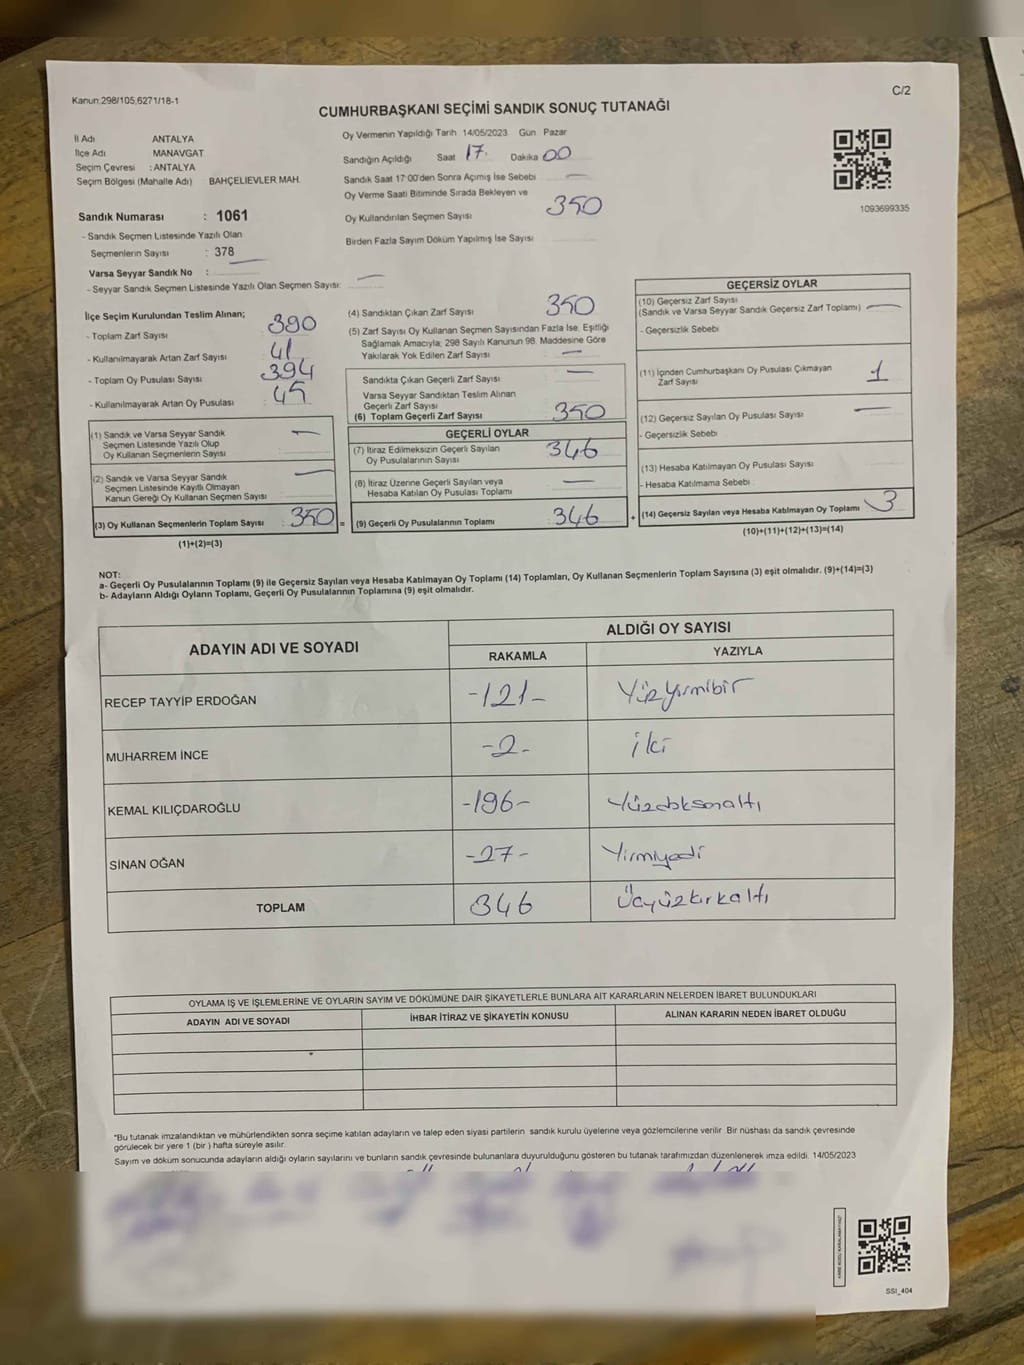 Kanun:298/105,6271/18-1
C/2
CUMHURBAŞKANI SEÇİMİ SANDIK SONUÇ TUTANAĞI
İl Adı ANTALYA
İlçe Adı MANAVGAT
Seçim Çevresi : ANTALYA
Seçim Bölgesi (Mahalle Adı) BAHÇELİEVLER MAH.
Sandık Numarası : 1061
- Sandık Seçmen Listesinde Yazılı Olan
Seçmenlerin Sayısı : 378
Varsa Seyyar Sandık No :
- Seyyar Sandık Seçmen Listesinde Yazılı Olan Seçmen Sayısı:
Oy Vermenin Yapıldığı Tarih 14/05/2023 Gün Pazar
Sandığın Açıldığı Saat 17. Dakika 00
Sandık Saat 17:00'den Sonra Açımış İse Sebebi
Oy Verme Saati Bitiminde Sırada Bekleyen ve
Oy Kullandırılan Seçmen Sayısı 350
Birden Fazla Sayım Döküm Yapılmış İse Sayısı
1093699335
İlçe Seçim Kurulundan Teslim Alınan;
- Toplam Zarf Sayısı 390
- Kullanılmayarak Artan Zarf Sayısı 41
- Toplam Oy Pusulası Sayısı 394
- Kullanılmayarak Artan Oy Pusulası 45
(1) Sandık ve Varsa Seyyar Sandık
Seçmen Listesinde Yazılı Olup
Oy Kullanan Seçmenlerin Sayısı
(2) Sandık ve Varsa Seyyar Sandık
Seçmen Listesinde Kayıtlı Olmayan
Kanun Gereği Oy Kullanan Seçmen Sayısı
(3) Oy Kullanan Seçmenlerin Toplam Sayısı 350 =
(1)+(2)=(3)
(4) Sandıktan Çıkan Zarf Sayısı 350
(5) Zarf Sayısı Oy Kullanan Seçmen Sayısından Fazla İse, Eşitliği
Sağlamak Amacıyla, 298 Sayılı Kanunun 98. Maddesine Göre
Yakılarak Yok Edilen Zarf Sayısı
Sandıkta Çıkan Geçerli Zarf Sayısı
Varsa Seyyar Sandıktan Teslim Alınan
Geçerli Zarf Sayısı
(6) Toplam Geçerli Zarf Sayısı 350
GEÇERLİ OYLAR
(7) İtiraz Edilmeksizin Geçerli Sayılan
Oy Pusulalarının Sayısı 346
(8) İtiraz Üzerine Geçerli Sayılan veya
Hesaba Katılan Oy Pusulası Toplamı
(9) Geçerli Oy Pusulalarının Toplamı 346 +
GEÇERSİZ OYLAR
(10) Geçersiz Zarf Sayısı
(Sandık ve Varsa Seyyar Sandık Geçersiz Zarf Toplamı)
- Geçersizlik Sebebi
(11) İçinden Cumhurbaşkanı Oy Pusulası Çıkmayan
Zarf Sayısı 1
(12) Geçersiz Sayılan Oy Pusulası Sayısı
- Geçersizlik Sebebi
(13) Hesaba Katılmayan Oy Pusulası Sayısı
- Hesaba Katılmama Sebebi
(14) Geçersiz Sayılan veya Hesaba Katılmayan Oy Toplamı 3
(10)+(11)+(12)+(13)=(14)
NOT:
a- Geçerli Oy Pusulalarının Toplamı (9) ile Geçersiz Sayılan veya Hesaba Katılmayan Oy Toplamı (14) Toplamları, Oy Kullanan Seçmenlerin Toplam Sayısına (3) eşit olmalıdır. (9)+(14)=(3)
b- Adayların Aldığı Oyların Toplamı, Geçerli Oy Pusulalarının Toplamına (9) eşit olmalıdır.
ADAYIN ADI VE SOYADI
ALDIĞI OY SAYISI
RAKAMLA YAZIYLA
RECEP TAYYİP ERDOĞAN -121- Yüzyirmibir
MUHARREM İNCE -2- iki
KEMAL KILIÇDAROĞLU -196- Yüzdoksanaltı
SİNAN OĞAN -27- Yirmiyedi
TOPLAM 346 Üçyüzkırkaltı
OYLAMA İŞ VE İŞLEMLERİNE VE OYLARIN SAYIM VE DÖKÜMÜNE DAİR ŞİKAYETLERLE BUNLARA AİT KARARLARIN NELERDEN İBARET BULUNDUKLARI
ADAYIN ADI VE SOYADI İHBAR İTİRAZ VE ŞİKAYETİN KONUSU ALINAN KARARIN NEDEN İBARET OLDUĞU
*Bu tutanak imzalandıktan ve mühürlendikten sonra seçime katılan adayların ve talep eden siyasi partilerin sandık kurulu üyelerine veya gözlemcilerine verilir. Bir nüshası da sandık çevresinde
görülecek bir yere 1 (bir) hafta süreyle asılır.
Sayım ve döküm sonucunda adayların aldığı oyların sayılarını ve bunların sandık çevresinde bulunanlara duyurulduğunu gösteren bu tutanak tarafımızdan düzenlenerek imza edildi. 14/05/2023
SSI_404